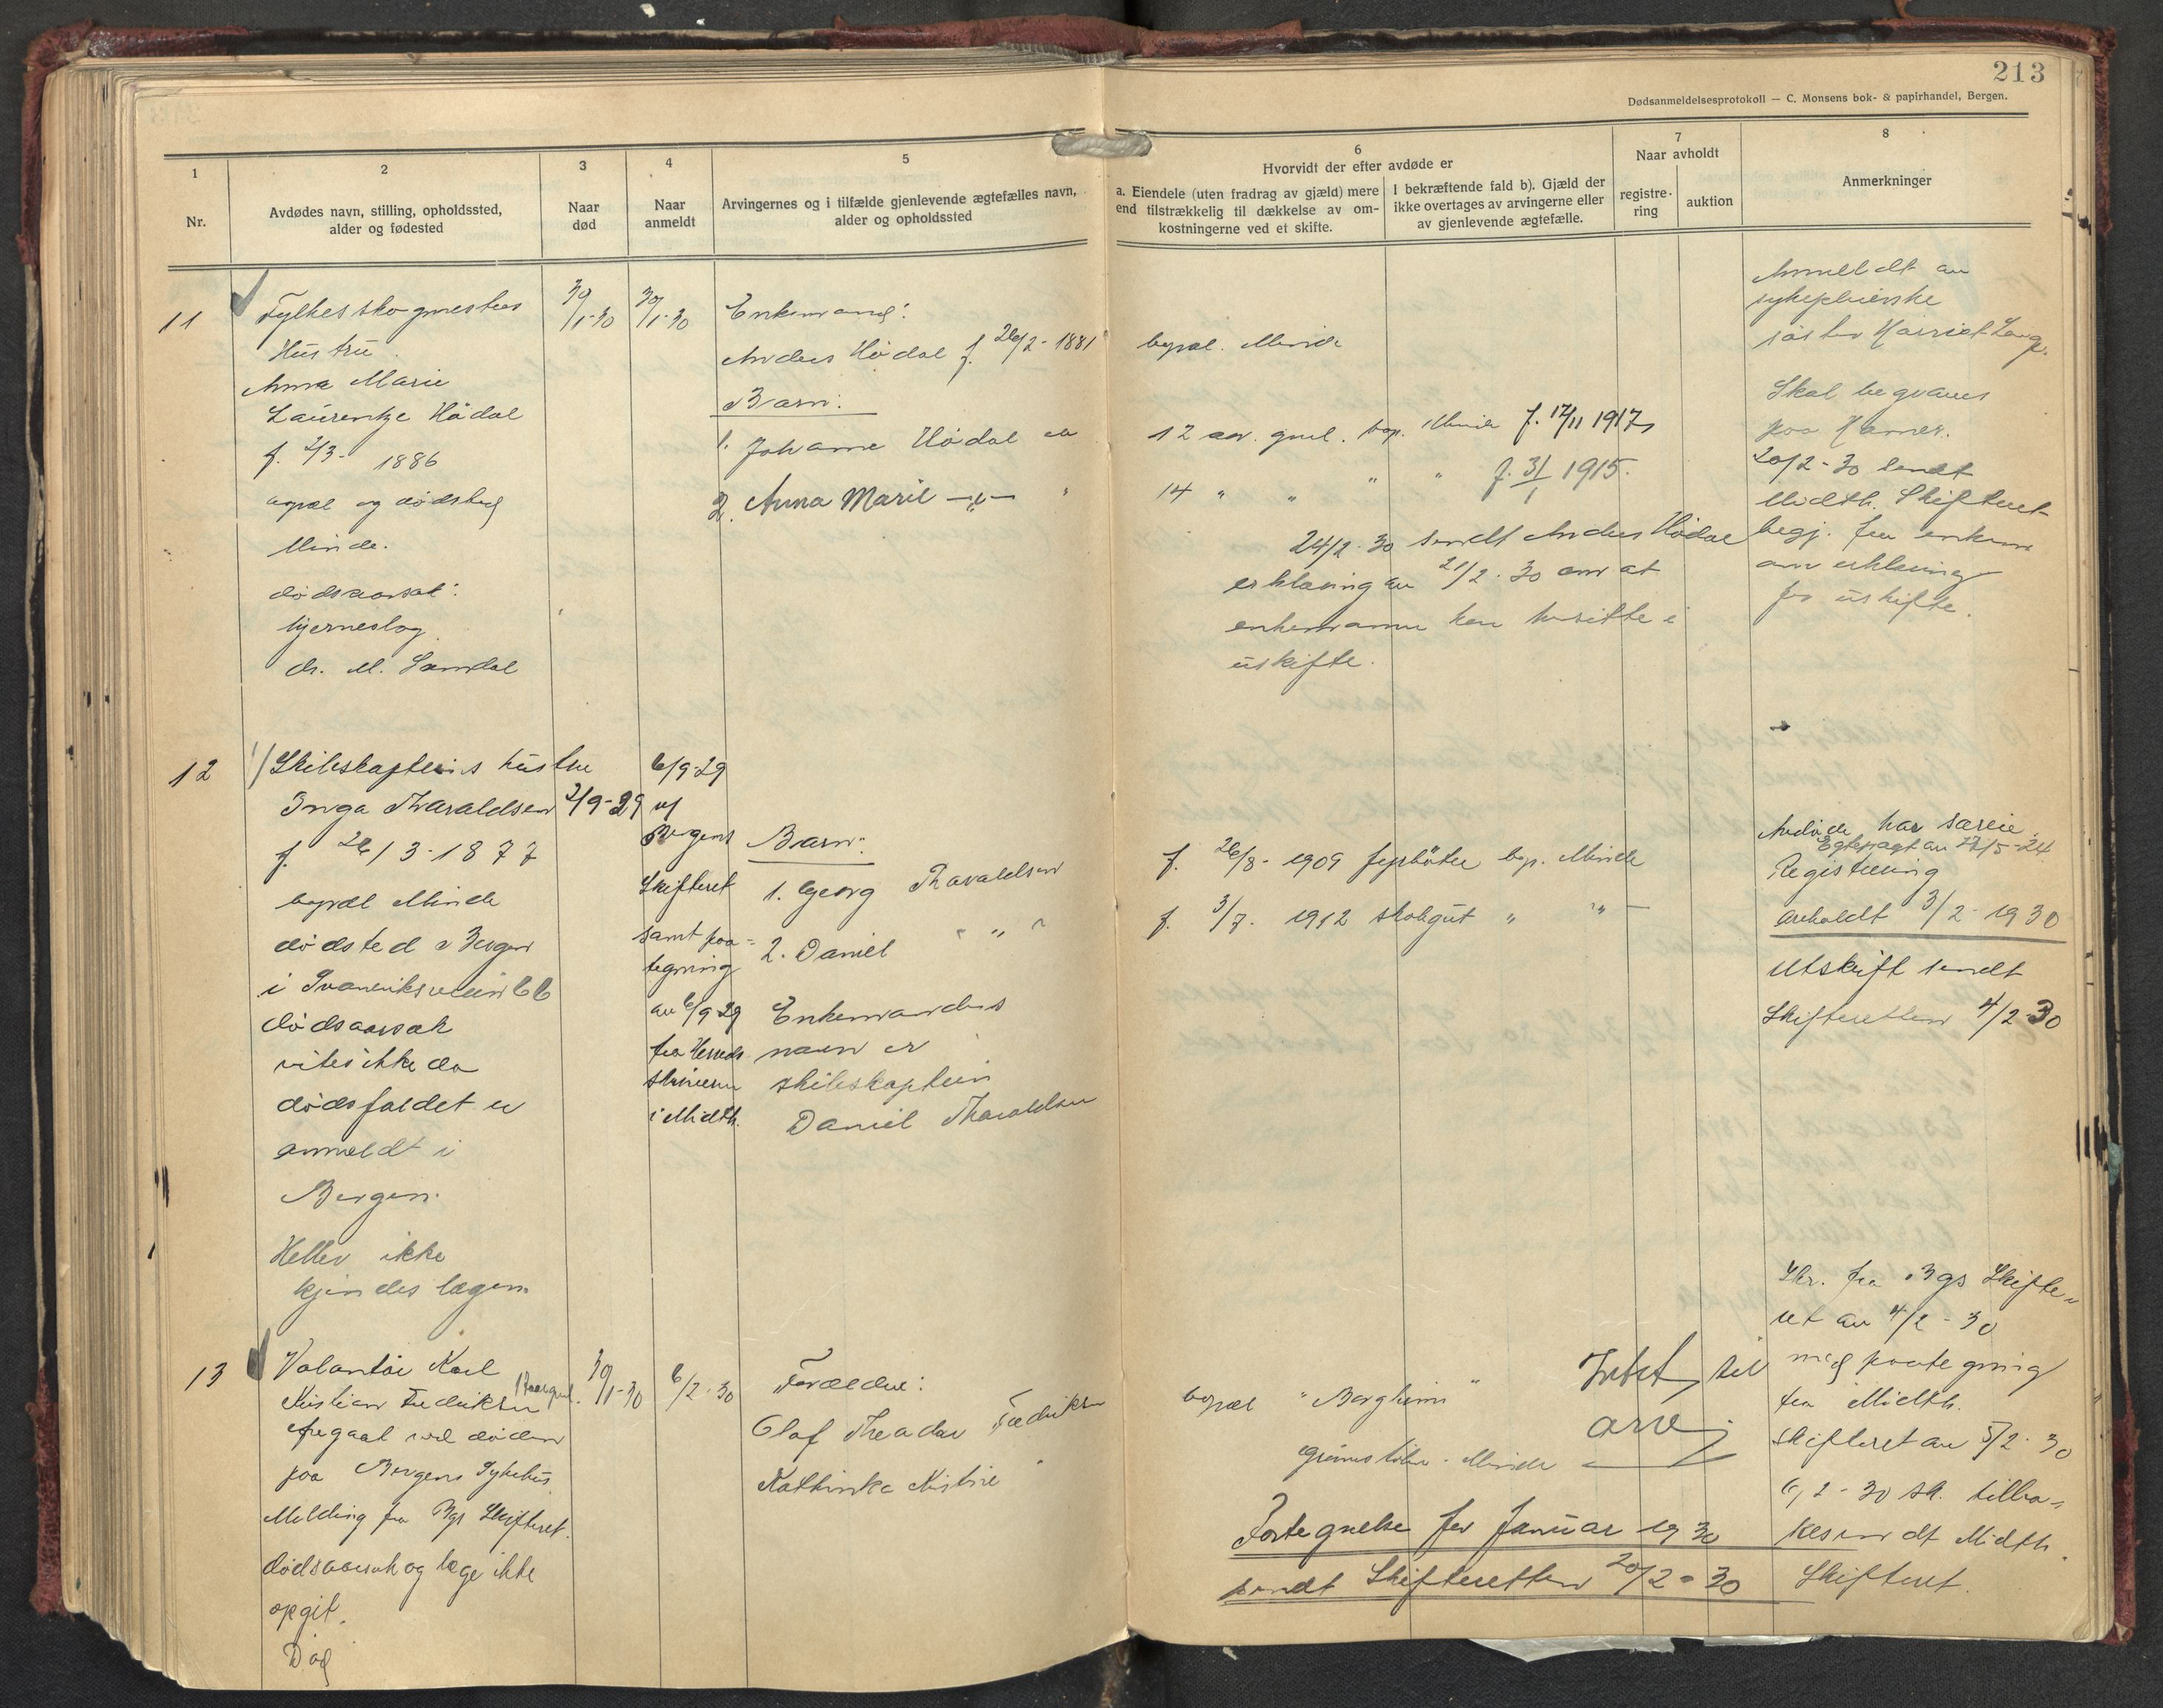 213
Dødsanmeldelsesprotokoll — C. Monsens bok- & papirhandel, Bergen.
1
Nr.
2
Avdødes navn, stilling, opholdssted,
alder og fødested
3
Naar
død
4
Naar
anmeldt
5
Arvingernes og i tilfælde gjenlevende ægtefælles navn,
alder og opholdssted
6
Hvorvidt der efter avdøde er
a. Eiendele (uten fradrag av gjæld) mere
end tilstrækkelig til dækkelse av om-
kostningerne ved et skifte.
I bekræftende fald b). Gjæld der
ikke overtages av arvingerne eller
av gjenlevende ægtefælle.
7
Naar avholdt
registre-
ring
auktion
8
Anmerkninger
11
Fylkesskogmesters
Hustru
Anna Marie
Laurentze Hødal
f. 2/3- 1886
bopæl og dødssted
Minde.
dødsaarsak:
hjerneslag
dr. M. Sandal
30/1-30
30/1-30
Enkemand:
Anders Hødal f. 26/2-1881
Barn:
1. Johanne Hødal
2. Anna Marie —"—
bopæl. Minde
12 aar. gml. bop. Minde f. 17/11 1917
14 " " " " f. 3/1 1915.
24/2-30 sendt Anders Hødal
erklæring av 21/2-30 om at
enkemannen kan besitte i
uskifte.
Anmeldt av
sykepleierske
søster Harriet Lange.
Skal begraves
paa Hamer.
20/2-30 sendt
Midth. Skifteret
begj. fra enkem
om erklæring
for uskifte.
12
1) Skibskapteins hustru
Inga Tharaldsen
f. 26/3-1877
bopæl Minde
dødsted Bergen
i Ivareniksveien 66
dødsaarsak
vites ikke da
dødsfaldet er
anmeldt i
Bergen.
Heller ikke
kjendes lægen.
2/9-29
6/9-29
Bergens
Skifteret
samt paa-
tegning
av 6/9-29
fra Hereds-
skriveren
i Midth.
Barn:
1. Georg Tharaldsen
2. Daniel " "
Enkemandens
navn er
skibskaptein
Daniel Tharaldsen
f. 26/8-1909 fyrbøter bop. Minde
f. 3/7. 1912 skolegut " " —
Avdøde har særeie.
Egtepagt av 17/5-24
Registrering
avholdt 3/2-1930
Utskift sendt
Skifteretten 4/2-30
13
Volontør Karl
Kristian Fredriksen
Avgaat ved døden
paa Bergens Sykehus
Melding fra Bgs Skifteret.
dødsaarsak og læge ikke
opgit.
Død
30/1-30
6/2-30
Forældre:
Olaf Theodor Fredriksen
Kathinka Kristine "
bopæl "Bergheim"
Grimstølen. Minde
Intet til
arv
Fortegnelse for Januar 1930
sendt Skifteretten 20/2-30
Skr. fra Bgs Skifte-
ret av 4/2-30
med paategning
fra Midth.
skifteret av 5/2-30
6/2-30 sk. tilba-
kesendt Midth.
Skifteret.